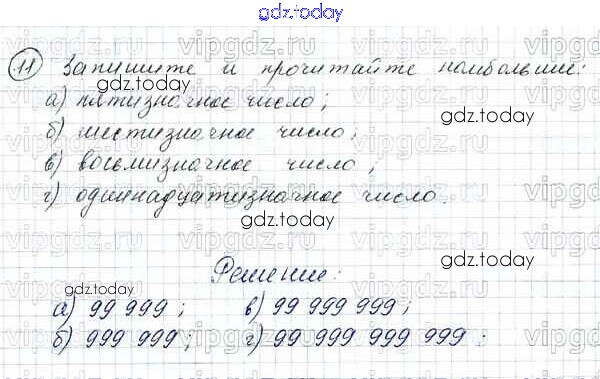 gdz.today
11 Запишите и прочитайте наибольшие:
а) пятизначное число;
б) шестизначное число;
в) восьмизначное число;
г) одиннадцатизначное число.
Решение:
а) 99 999; в) 99 999 999;
б) 999 999; г) 99 999 999 999;
gdz.today
gdz.today
gdz.today
gdz.today
gdz.today
gdz.today